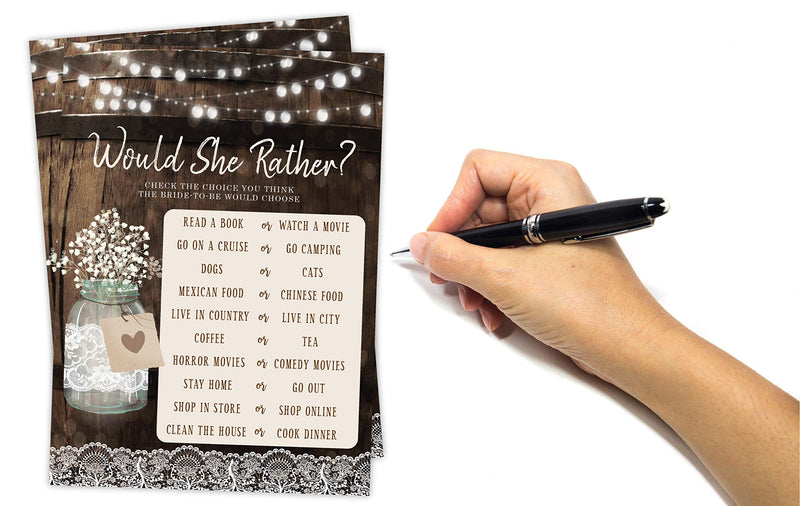 Would She Rather?
CHECK THE CHOICE YOU THINK
THE BRIDE-TO-BE WOULD CHOOSE
READ A BOOK or WATCH A MOVIE
GO ON A CRUISE or GO CAMPING
DOGS or CATS
MEXICAN FOOD or CHINESE FOOD
LIVE IN COUNTRY or LIVE IN CITY
COFFEE or TEA
HORROR MOVIES or COMEDY MOVIES
STAY HOME or GO OUT
SHOP IN STORE or SHOP ONLINE
CLEAN THE HOUSE or COOK DINNER